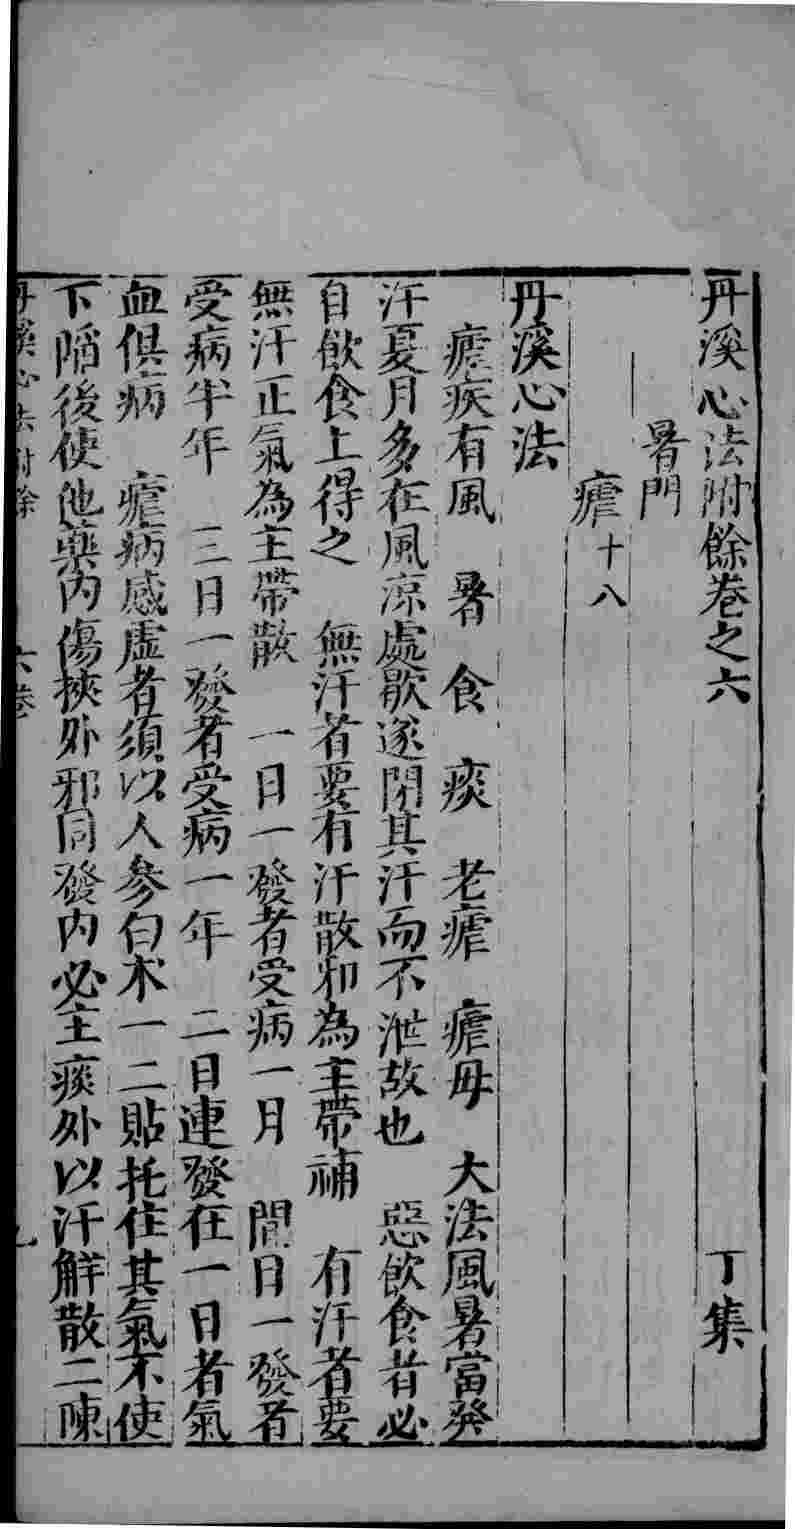 丹溪心法附餘卷之六 丁集
暑門
瘧十八
丹溪心法
瘧疾有風 暑 食 痰 老瘧 瘧毋 大法風暑當發
汗夏月多在風凉處歇遂閉其汗而不泄故也 惡飲食者必
自飲食上得之 無汗者要有汗散邪為主帶補 有汗者要
無汗正氣為主帶散 一日一發者受病一月 間日一發者
受病半年 三日一發者受病一年 二日連發住一日者氣
血俱病 瘧病感虛者須以人參白术一二貼托住其氣不使
下陷後使他藥內傷挾外邪同發內必主痰外以汗解散二陳
丹溪心法附餘 六卷